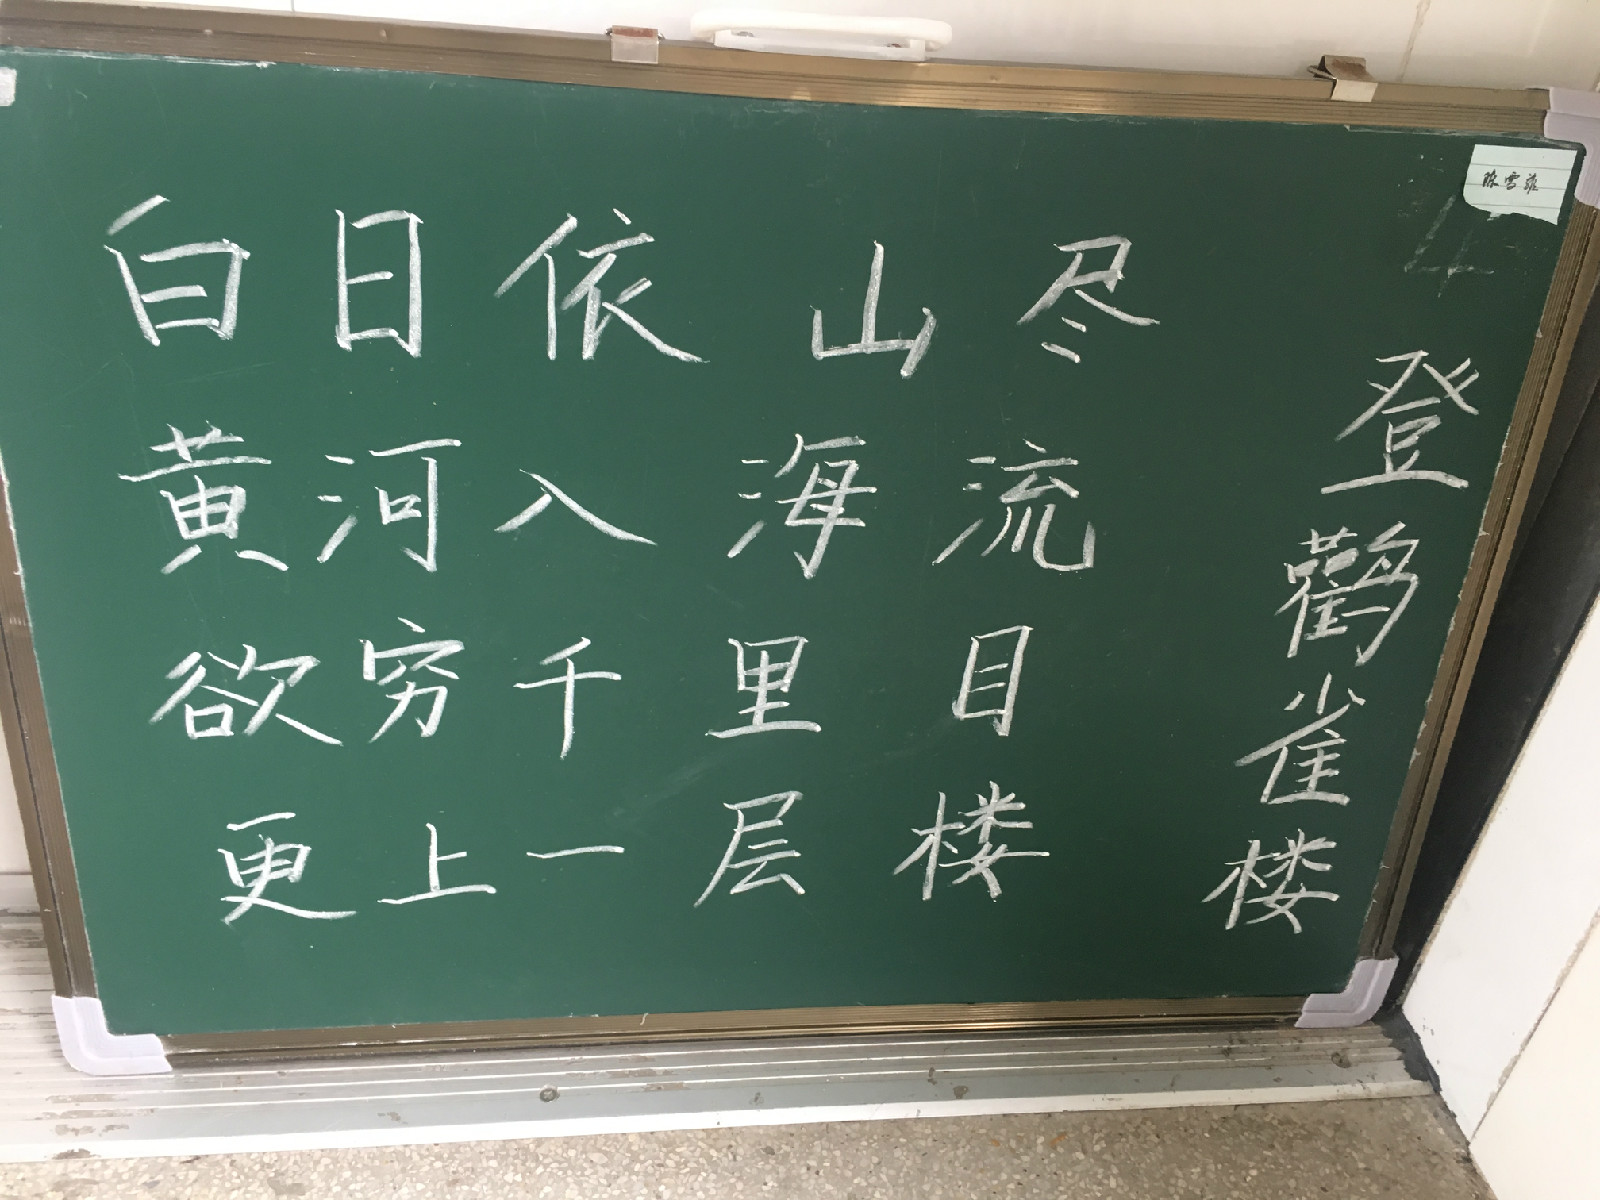 陈雪菲
登鹳雀楼
白日依山尽
黄河入海流
欲穷千里目
更上一层楼